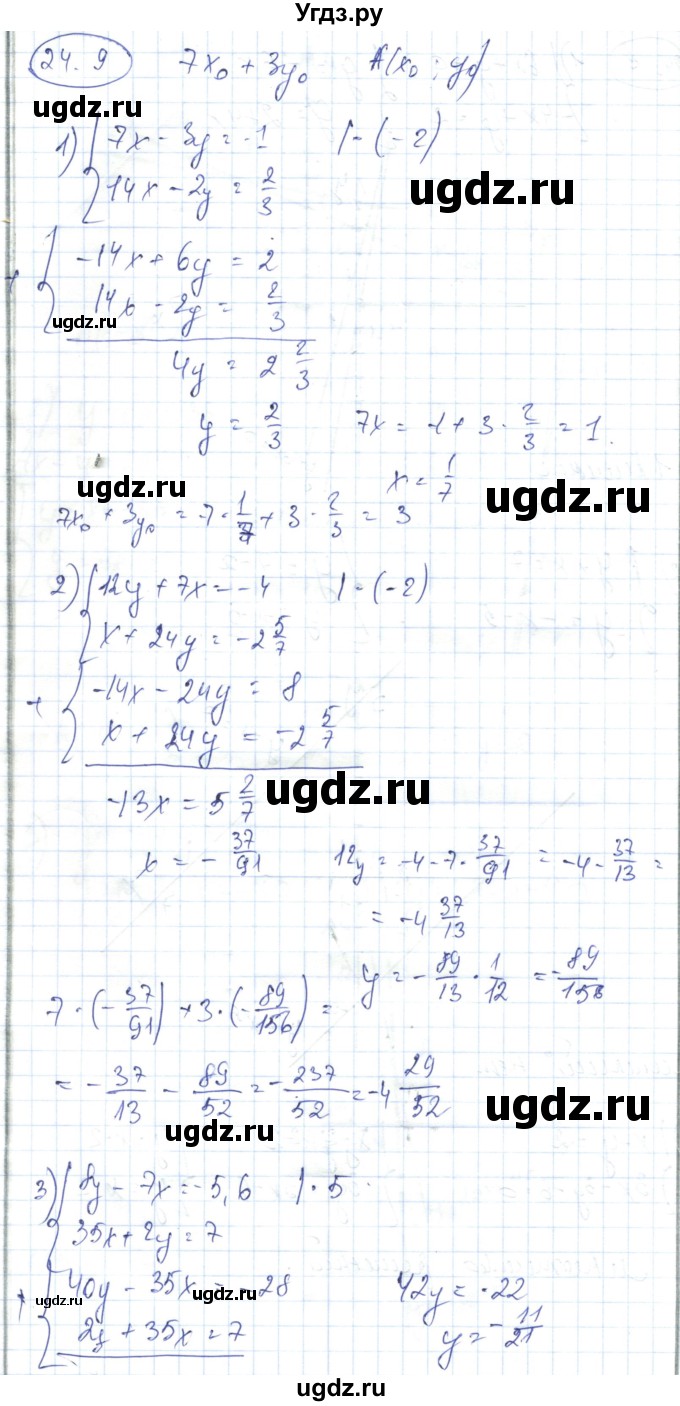 Угдз.ру
24.9 7x₀ + 3y₀ A(x₀; y₀)
ugdz.ru
1) { 7x - 3y = -1 | · (-2)
14x - 2y = 2/3
ugdz.ru
+ { -14x + 6y = 2
14x - 2y = 2/3
ugdz.ru
4y = 2 2/3
y = 2/3 7x = -1 + 3 · 2/3 = 1.
x = 1/7
ugdz.ru ugdz.ru
7x₀ + 3y₀ = 7 · 1/7 + 3 · 2/3 = 3
2) { 12y + 7x = -4 | · (-2)
x + 24y = -2 5/7
+ { -14x - 24y = 8
x + 24y = -2 5/7
-13x = 5 2/7
ugdz.ru
x = - 37/91 12y = -4 - 7 · 37/91 = -4 - 37/13 =
= -4 37/13
y = - 89/13 · 1/12 = - 89/156
7 · (- 37/91) + 3 · (- 89/156) =
= - 37/13 - 89/52 = - 237/52 = -4 29/52
ugdz.ru
ugdz.ru
3) { 8y - 7x = -5,6 | · 5
35x + 2y = 7
+ { 40y - 35x = -28 42y = -22
ugdz.ru ugdz.ru
2y + 35x = 7 y = - 11/21
ugdz.ru